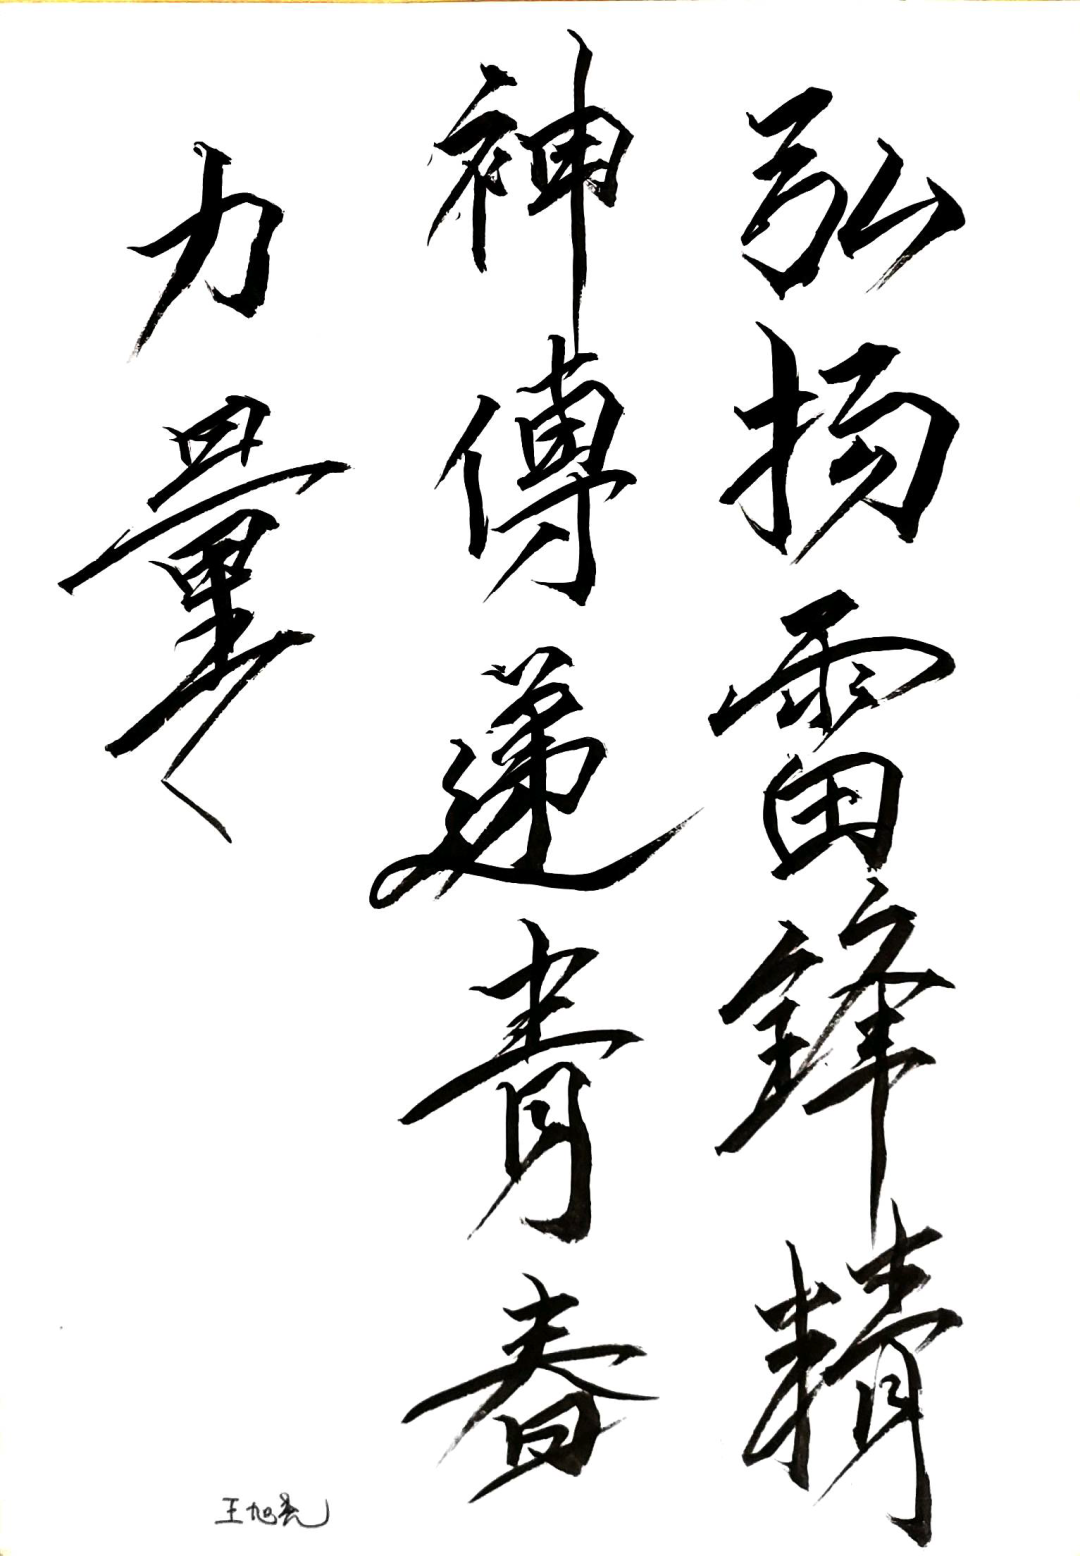 弘扬雷鋒精
神傳遞青春
力量
王旭亮